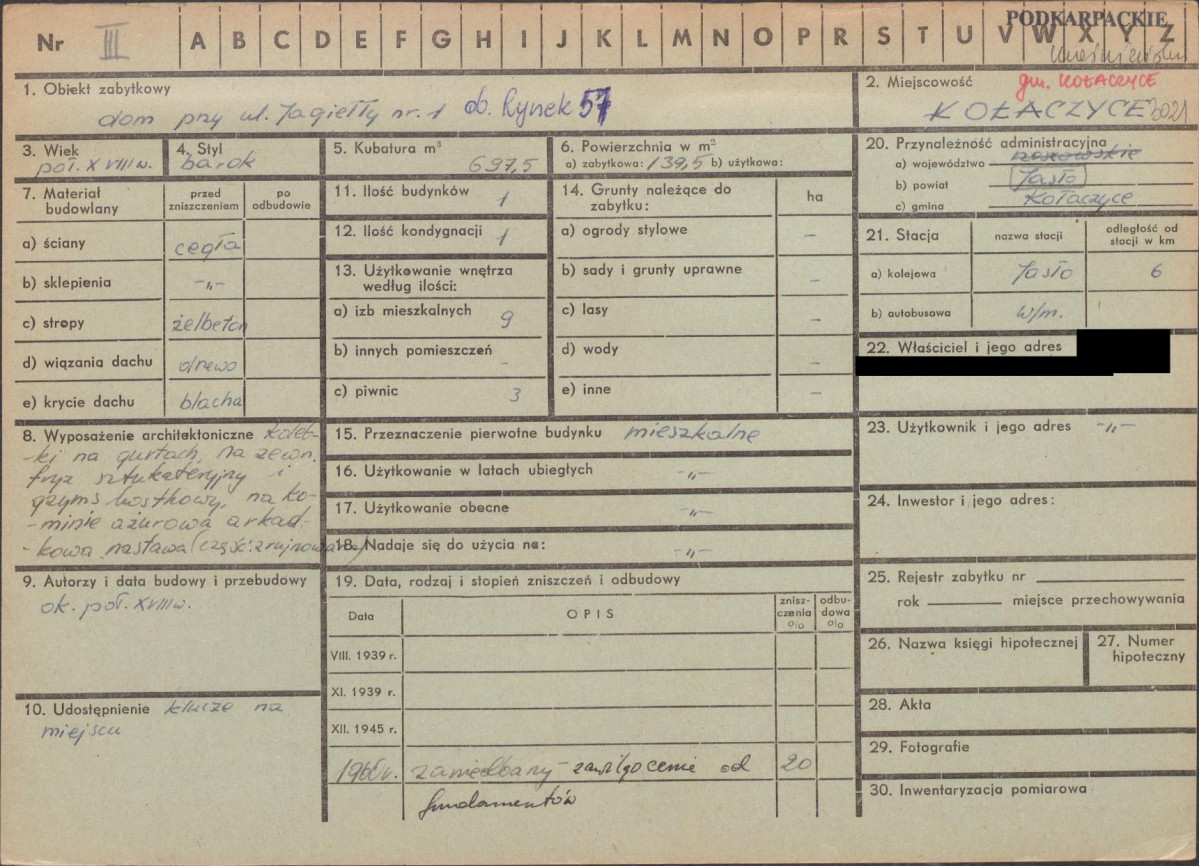 PODKARPACKIE
Nr III A B C D E F G H I J K L M N O P R S T U V W X Y Z
1. Obiekt zabytkowy
dom przy ul. Jagiełły nr. 1 ob. Rynek 57
2. Miejscowość gm. KOŁACZYCE
KOŁACZYCE 3021
3. Wiek
poł. XVIII w.
4. Styl
barok
5. Kubatura m³
697,5
6. Powierzchnia w m²
a) zabytkowa: 139,5 b) użytkowa:
20. Przynależność administracyjna
a) województwo rzeszowskie
b) powiat Jasło
c) gmina Kołaczyce
7. Materiał budowlany
przed zniszczeniem
po odbudowie
a) ściany cegła
b) sklepienia -„-
c) stropy żelbeton
d) wiązania dachu drewo
e) krycie dachu blacha
11. Ilość budynków 1
12. Ilość kondygnacji 1
13. Użytkowanie wnętrza
według ilości:
a) izb mieszkalnych 9
b) innych pomieszczeń -
c) piwnic 3
14. Grunty należące do
zabytku:
ha
a) ogrody stylowe –
b) sady i grunty uprawne –
c) lasy –
d) wody –
e) inne –
21. Stacja
nazwa stacji
odległość od
stacji w km
a) kolejowa Jasło 6
b) autobusowa w/m.
22. Właściciel i jego adres
8. Wyposażenie architektoniczne koleb-
-ki na gurtach, na zewn.
fryz sztukateryjny i
gzyms kostkowy, na ko-
-minie ażurowa arkad-
-kowa nastawa (część. zrujnowana)
15. Przeznaczenie pierwotne budynku mieszkalne
16. Użytkowanie w latach ubiegłych -„-
17. Użytkowanie obecne -„-
18. Nadaje się do użycia na: -„-
23. Użytkownik i jego adres -„-
24. Inwestor i jego adres:
9. Autorzy i data budowy i przebudowy
ok. poł. XVIII w.
10. Udostępnienie klucze na
miejscu
19. Data, rodzaj i stopień zniszczeń i odbudowy
Data
OPIS
znisz-
czenia
o|o
odbu-
dowa
o|o
VIII. 1939 r.
XI. 1939 r.
XII. 1945 r.
1960r. zaniedbany – zawilgocenie od 20
fundamentów
25. Rejestr zabytku nr
rok miejsce przechowywania
26. Nazwa księgi hipotecznej
27. Numer
hipoteczny
28. Akta
29. Fotografie
30. Inwentaryzacja pomiarowa